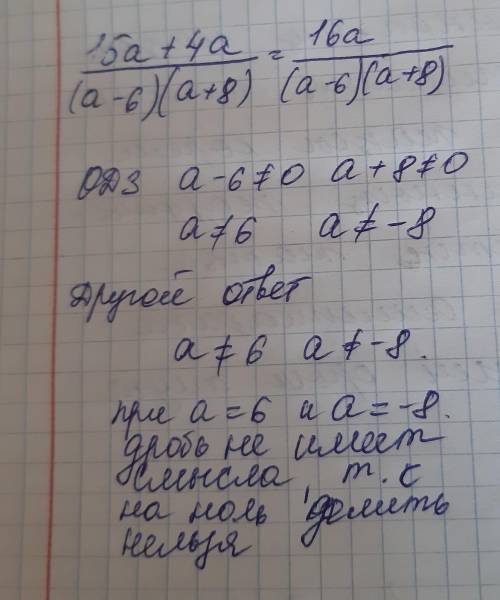 15a + 4a / (a - 6)(a + 8) = 16a / (a - 6)(a + 8)
ОДЗ a - 6 ≠ 0 a + 8 ≠ 0
a ≠ 6 a ≠ -8
Другой ответ
a ≠ 6 a ≠ -8.
при a = 6 и a = -8.
дробь не имеет
смысла, т.с
на ноль делить
нельзя